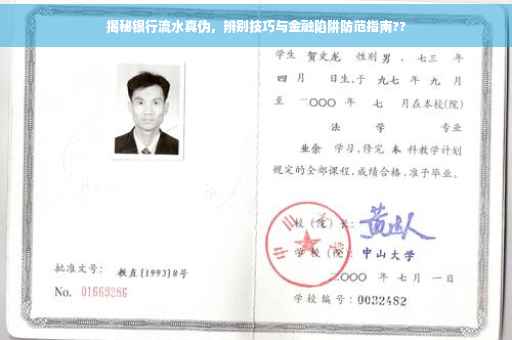 揭秘银行流水真伪，辨别技巧与金融陷阱防范指南??
学生 贺文龙 性别 男，七三 年
四 月 日生，于 九七 年 九 月
至 二〇〇〇 年 七 月在本校(院)
法 学 专业
业余 学习，修完 本 科教学计划
规定的全部课程，成绩合格，准予毕业。
校（院）长：
学校（院）：中山大学
二〇〇〇 年 七 月 一 日
学校编号：0032482
批准文号：教直[1993]8号
No. 01669286